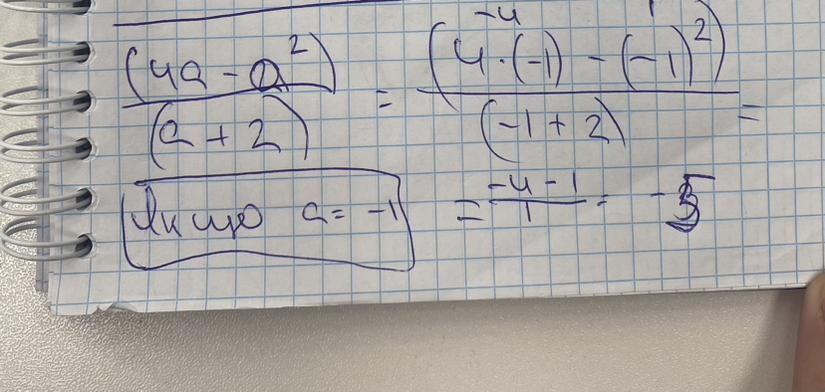 (4a - a²) / (a + 2) = (4·(-1) - (-1)²) / (-1 + 2) =
-4 1
Якщо a = -1
= (-4 - 1) / 1 = -5